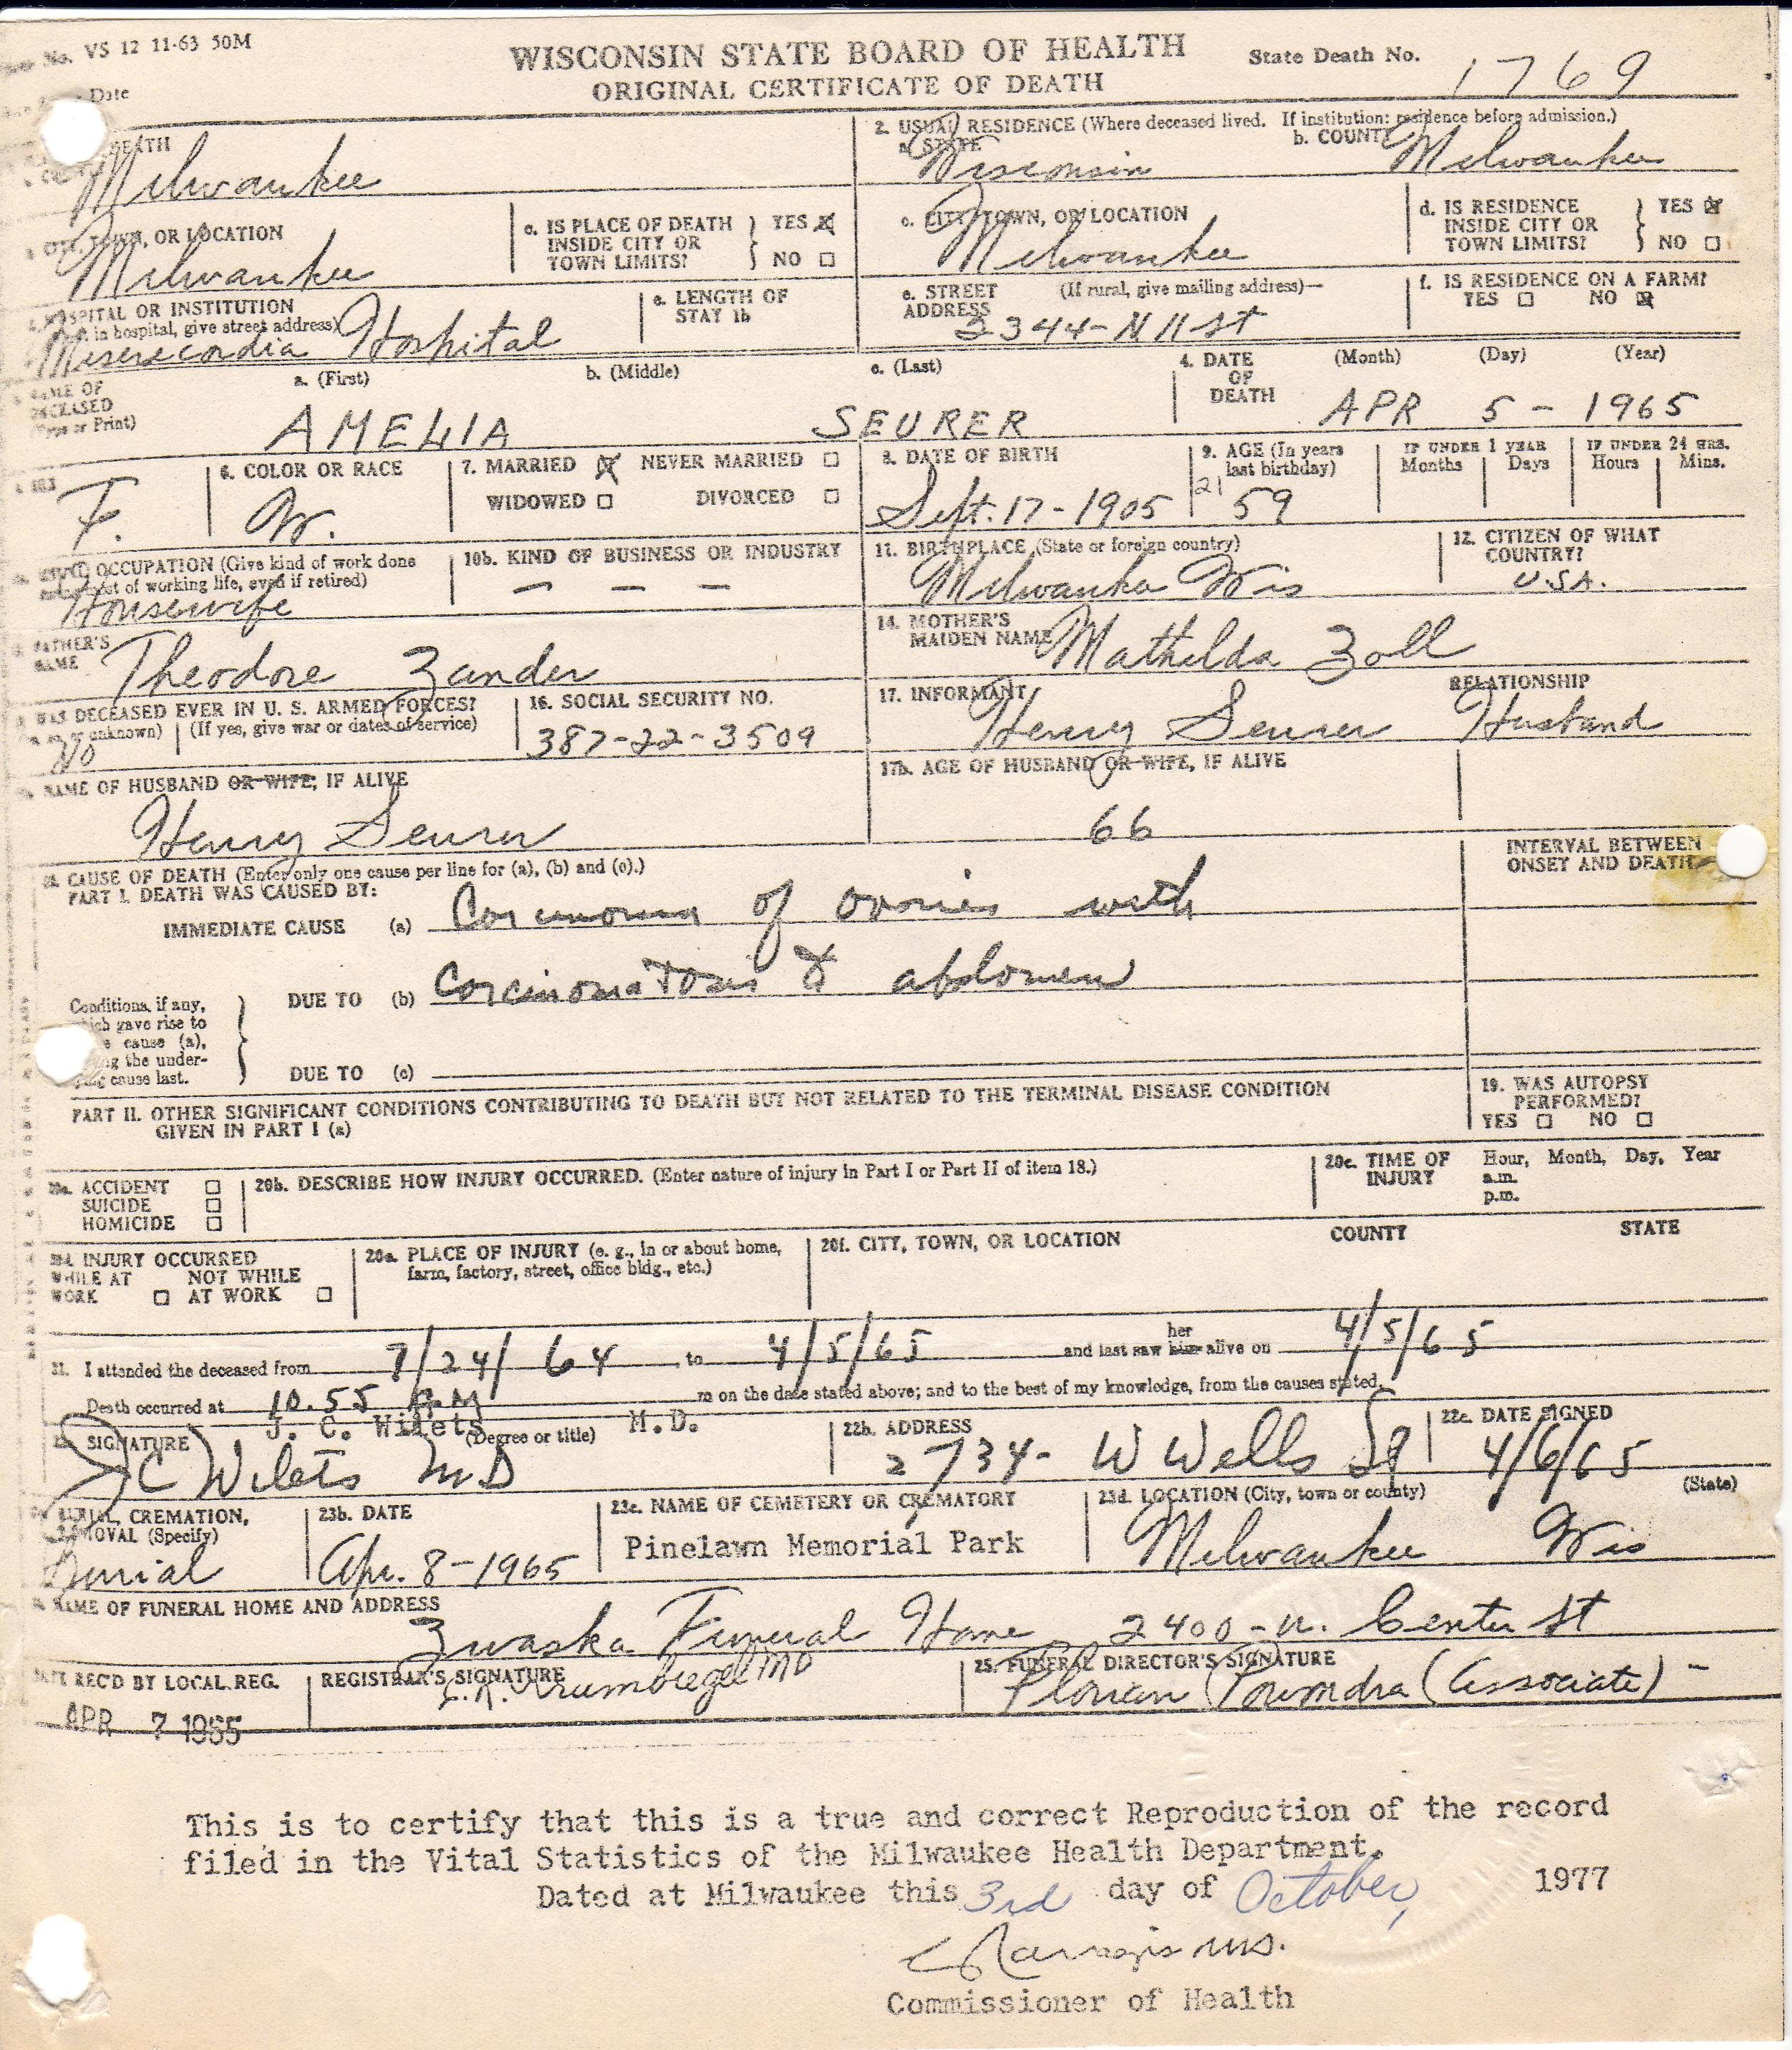 No. VS 12 11-63 50M
WISCONSIN STATE BOARD OF HEALTH
State Death No. 1769
ORIGINAL CERTIFICATE OF DEATH
Date
DEATH
Milwaukee
2. USUAL RESIDENCE (Where deceased lived. If institution: residence before admission.)
a. STATE Wisconsin
b. COUNTY Milwaukee
CITY, TOWN, OR LOCATION
Milwaukee
c. IS PLACE OF DEATH INSIDE CITY OR TOWN LIMITS? YES ☒ NO ☐
c. CITY, TOWN, OR LOCATION
Milwaukee
d. IS RESIDENCE INSIDE CITY OR TOWN LIMITS? YES ☒ NO ☐
HOSPITAL OR INSTITUTION
in hospital, give street address)
Miserecordia Hospital
e. LENGTH OF STAY 1b
e. STREET ADDRESS (If rural, give mailing address)—
2344-N 11 St
f. IS RESIDENCE ON A FARM?
YES ☐ NO ☒
NAME OF DECEASED (Type or Print)
a. (First) b. (Middle) c. (Last)
AMELIA SEURER
4. DATE OF DEATH (Month) (Day) (Year)
APR 5 - 1965
SEX
F.
6. COLOR OR RACE
W.
7. MARRIED ☒ NEVER MARRIED ☐
WIDOWED ☐ DIVORCED ☐
8. DATE OF BIRTH
Sept. 17 - 1905
9. AGE (In years last birthday)
21 59
IF UNDER 1 YEAR
Months Days
IF UNDER 24 HRS.
Hours Mins.
OCCUPATION (Give kind of work done
of working life, even if retired)
Housewife
10b. KIND OF BUSINESS OR INDUSTRY
— — —
11. BIRTHPLACE (State or foreign country)
Milwaukee Wis
12. CITIZEN OF WHAT COUNTRY?
U.S.A.
FATHER'S NAME
Theodore Zander
14. MOTHER'S MAIDEN NAME
Mathilda Zoll
WAS DECEASED EVER IN U. S. ARMED FORCES?
or unknown) (If yes, give war or dates of service)
No
16. SOCIAL SECURITY NO.
387-22-3509
17. INFORMANT
Henry Seurer
RELATIONSHIP
Husband
NAME OF HUSBAND OR WIFE, IF ALIVE
Henry Seurer
17b. AGE OF HUSBAND OR WIFE, IF ALIVE
66
18. CAUSE OF DEATH (Enter only one cause per line for (a), (b) and (c).)
PART I. DEATH WAS CAUSED BY:
INTERVAL BETWEEN ONSET AND DEATH
IMMEDIATE CAUSE (a) Carcinoma of ovaries with
Conditions, if any,
gave rise to
cause (a),
the under-
cause last.
DUE TO (b) Carcinomatosis of abdomen
DUE TO (c)
PART II. OTHER SIGNIFICANT CONDITIONS CONTRIBUTING TO DEATH BUT NOT RELATED TO THE TERMINAL DISEASE CONDITION
GIVEN IN PART I (a)
19. WAS AUTOPSY PERFORMED?
YES ☐ NO ☐
20a. ACCIDENT ☐
SUICIDE ☐
HOMICIDE ☐
20b. DESCRIBE HOW INJURY OCCURRED. (Enter nature of injury in Part I or Part II of item 18.)
20c. TIME OF INJURY Hour, Month, Day, Year
a.m.
p.m.
20d. INJURY OCCURRED
WHILE AT WORK ☐ NOT WHILE AT WORK ☐
20e. PLACE OF INJURY (e. g., in or about home,
farm, factory, street, office bldg., etc.)
20f. CITY, TOWN, OR LOCATION COUNTY STATE
21. I attended the deceased from 7/24/64 to 4/5/65 and last saw her him alive on 4/5/65
Death occurred at 10.55 A.M m on the date stated above; and to the best of my knowledge, from the causes stated.
J. C. Wilets M.D.
SIGNATURE (Degree or title)
JC Wilets MD
22b. ADDRESS
2734- W Wells St
22c. DATE SIGNED
4/6/65
BURIAL, CREMATION,
REMOVAL (Specify)
Burial
23b. DATE
Apr. 8-1965
23c. NAME OF CEMETERY OR CREMATORY
Pinelawn Memorial Park
23d. LOCATION (City, town or county) (State)
Milwaukee Wis
NAME OF FUNERAL HOME AND ADDRESS
Zwaska Funeral Home 2400-W. Center St
DATE REC'D BY LOCAL REG.
APR 7 1965
REGISTRAR'S SIGNATURE
E.R. Krumbiegel MD
25. FUNERAL DIRECTOR'S SIGNATURE
Florian (Associate) -
This is to certify that this is a true and correct Reproduction of the record
filed in the Vital Statistics of the Milwaukee Health Department.
Dated at Milwaukee this 3rd day of October, 1977
Commissioner of Health